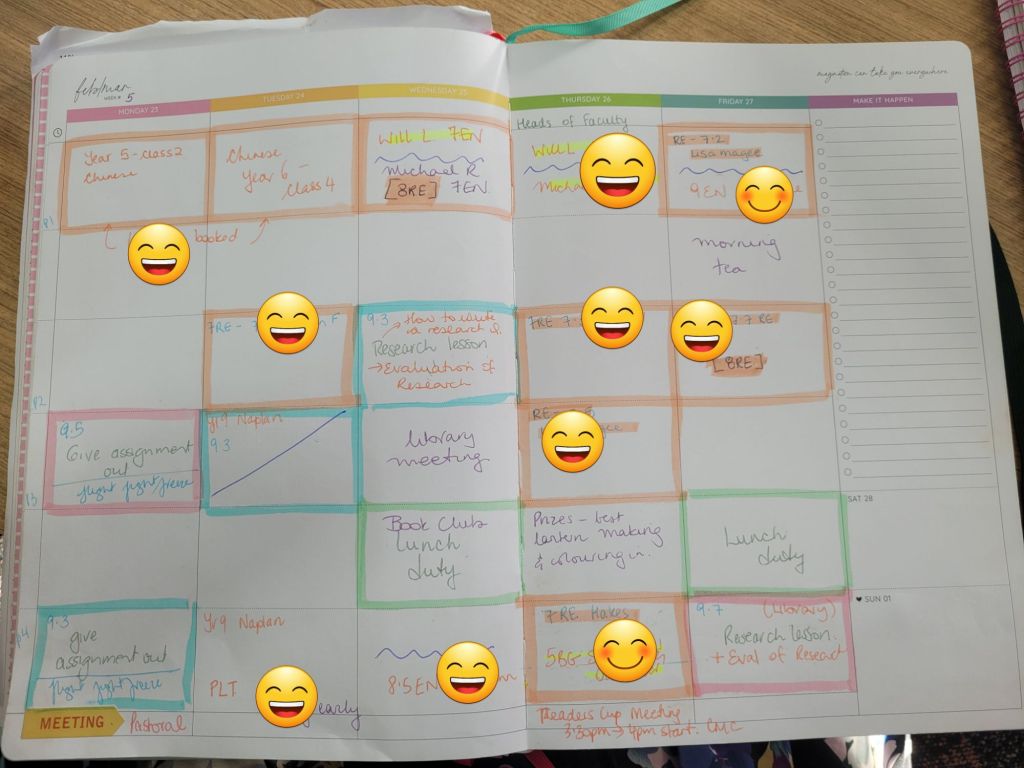 feb/mar
WEEK # 5
imagination can take you everywhere
MONDAY 23
TUESDAY 24
WEDNESDAY 25
THURSDAY 26
FRIDAY 27
MAKE IT HAPPEN
Heads of Faculty
P1
Year 5 - class 2
Chinese
Chinese
Year 6 -
class 4
booked
Will L 7EN
Michael R
[8RE] 7EN
Will L
Micha
RE - 7.2
Lisa magee
9EN
morning
tea
P2
7RE - 7
F
9.3
How to write
a research Q.
Research lesson
→ Evaluation of
Research
7RE 7.
7.7 RE
[8RE]
P3
9.5
Give assignment
out
flight fight freeze
Yr 9 Naplan
9.3
Library
meeting
RE -
Book Club
Lunch
duty
Prizes - best
lantern making
& colouring in.
Lunch
duty
SAT 28
P4
9.3
give
assignment out
flight fight freeze
Yr 9 Naplan
PLT
early
8.5EN
7 RE Hakes
5BG - S
9.7 (Library)
Research lesson.
+ Eval of Researc
SUN 01
MEETING
Pastoral
Readers Cup Meeting
3:30pm → 4pm start. CMC